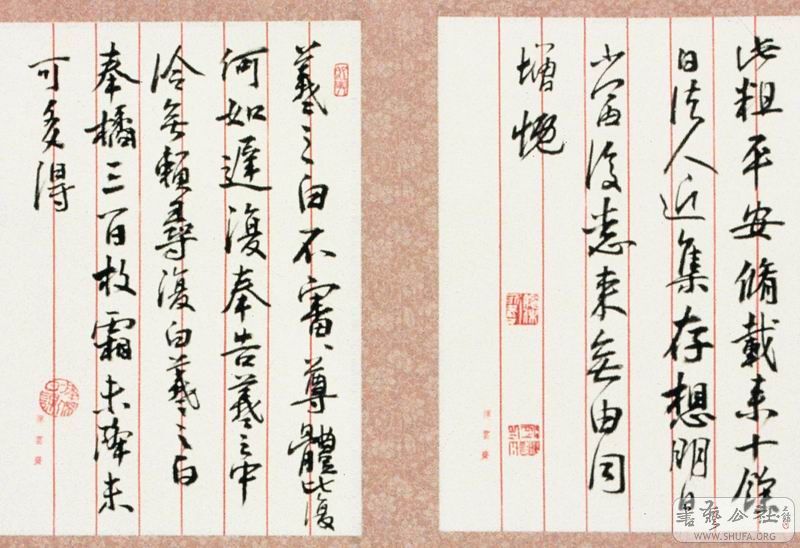 此粗平安脩載来十餘
日諸人近集存想明日
當復悉来無由同
增慨
羲之白不審尊體比復
何如遲復奉告羲之中
冷無賴尋復白羲之白
奉橘三百枚霜未降未
可多得
書藝公社
WWW.SHUFA.ORG